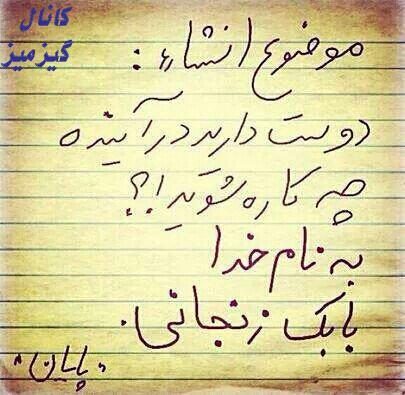 کانال
گیزمیز
موضوع انشاء:
دوست دارید در آینده
چه کاره شوید!؟
به نام خدا
بابک زنجانی.
"پایان"